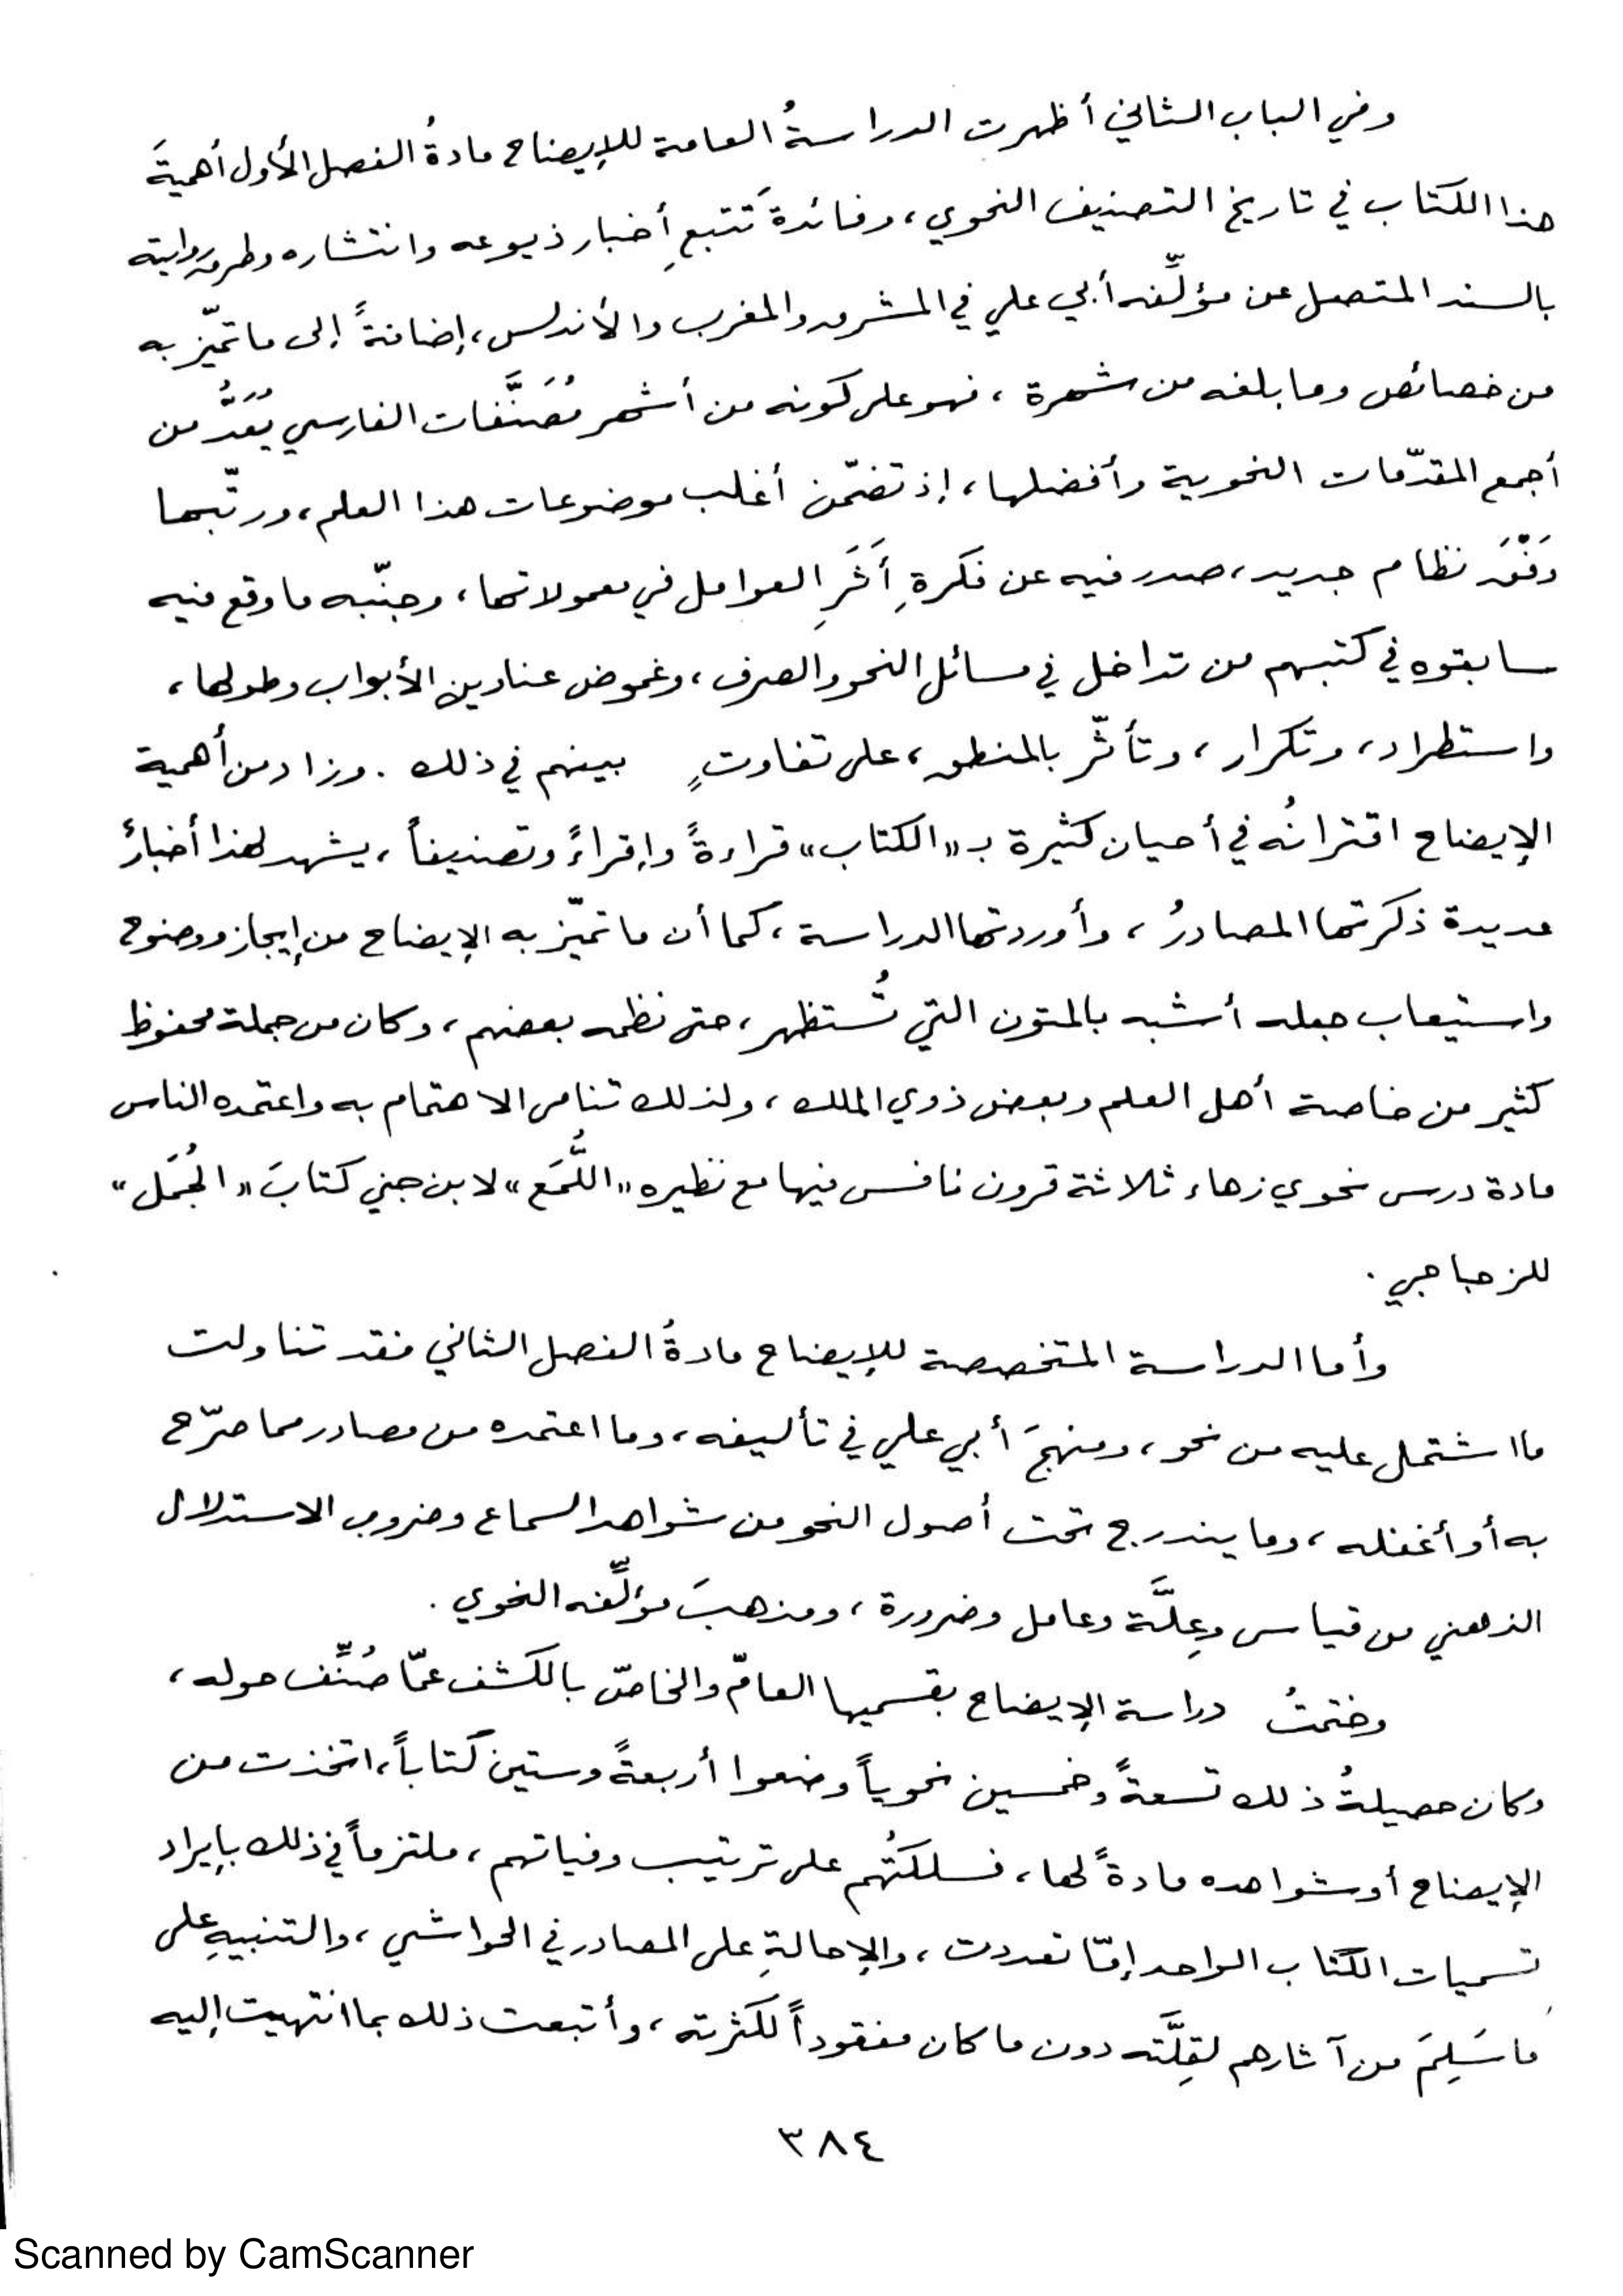 وفي الباب الثاني أظهرت الدراسةُ العامة للإيضاح مادةُ الفصل الأول أهميةَ
هذا الكتاب في تاريخ التصنيف النحوي، وفائدةَ تَتبعِ أخبار ذيوعه وانتشاره وطرق روايته
بالسند المتصل عن مؤلِّفه أبي علي في المشرق والمغرب والأندلس، إضافةً إلى ما تميّز به
من خصائص وما بلغه من شهرة، فهو على كونه من أشهر مُصَنَّفات الفارسي يُعَدُّ من
أجمع المقدّمات النحوية وأفضلها، إذ تضمّن أغلب موضوعات هذا العلم، ورتّبها
وَفْقَ نظام جديد، صدر فيه عن فكرةِ أَثَرِ العوامل في معمولاتها، وجنّبه ما وقع فيه
سابقوه في كتبهم من تداخل في مسائل النحو والصرف، وغموض عناوين الأبواب وطولها،
واستطراد، وتكرار، وتأثّر بالمنطق، على تفاوتٍ بينهم في ذلك. وزاد من أهمية
الإيضاح اقترانُه في أحيان كثيرة بـ «الكتاب» قراءةً وإقراءً وتصنيفاً، يشهد لهذا أخبارٌ
عديدة ذكرتها المصادرُ، وأوردتها الدراسة، كما أن ما تميّز به الإيضاح من إيجاز ووضوح
واستيعاب جعله أشبه بالمتون التي تُستظهر، حتى نظمه بعضهم، وكان من جملة محفوظ
كثير من خاصة أهل العلم وبعض ذوي الملك، ولذلك تنامى الاهتمام به واعتمده الناس
مادة درس نحوي زهاء ثلاثة قرون نافس فيها مع نظيره «اللُّمَع» لابن جني كتابَ «الجُمَل»
للزجاجي.
وأما الدراسة المتخصصة للإيضاح مادةُ الفصل الثاني فقد تناولت
ما اشتمل عليه من نحو، ومنهجَ أبي علي في تأليفه، وما اعتمده من مصادر مما صرّح
به أو أغفله، وما يندرج تحت أصول النحو من شواهد السماع وضروب الاستدلال
الذهني من قياس وعِلَّة وعامل وضرورة، ومذهبَ مؤلِّفه النحوي.
وختمتُ دراسة الإيضاح بقسميها العامّ والخاصّ بالكشف عمّا صُنِّف حوله،
وكان حصيلةُ ذلك تسعةً وخمسين نحوياً وضعوا أربعةً وستين كتاباً، اتخذت من
الإيضاح أو شواهده مادةً لها، فسلكتُهم على ترتيب وفياتهم، ملتزماً في ذلك بإيراد
تسميات الكتاب الواحد إمّا تعددت، والإحالةِ على المصادر في الحواشي، والتنبيهِ على
ما سَلِمَ من آثارهم لقِلَّته دون ما كان مفقوداً لكثرته، وأتبعت ذلك بما انتهيت إليه
٣٨٤
Scanned by CamScanner